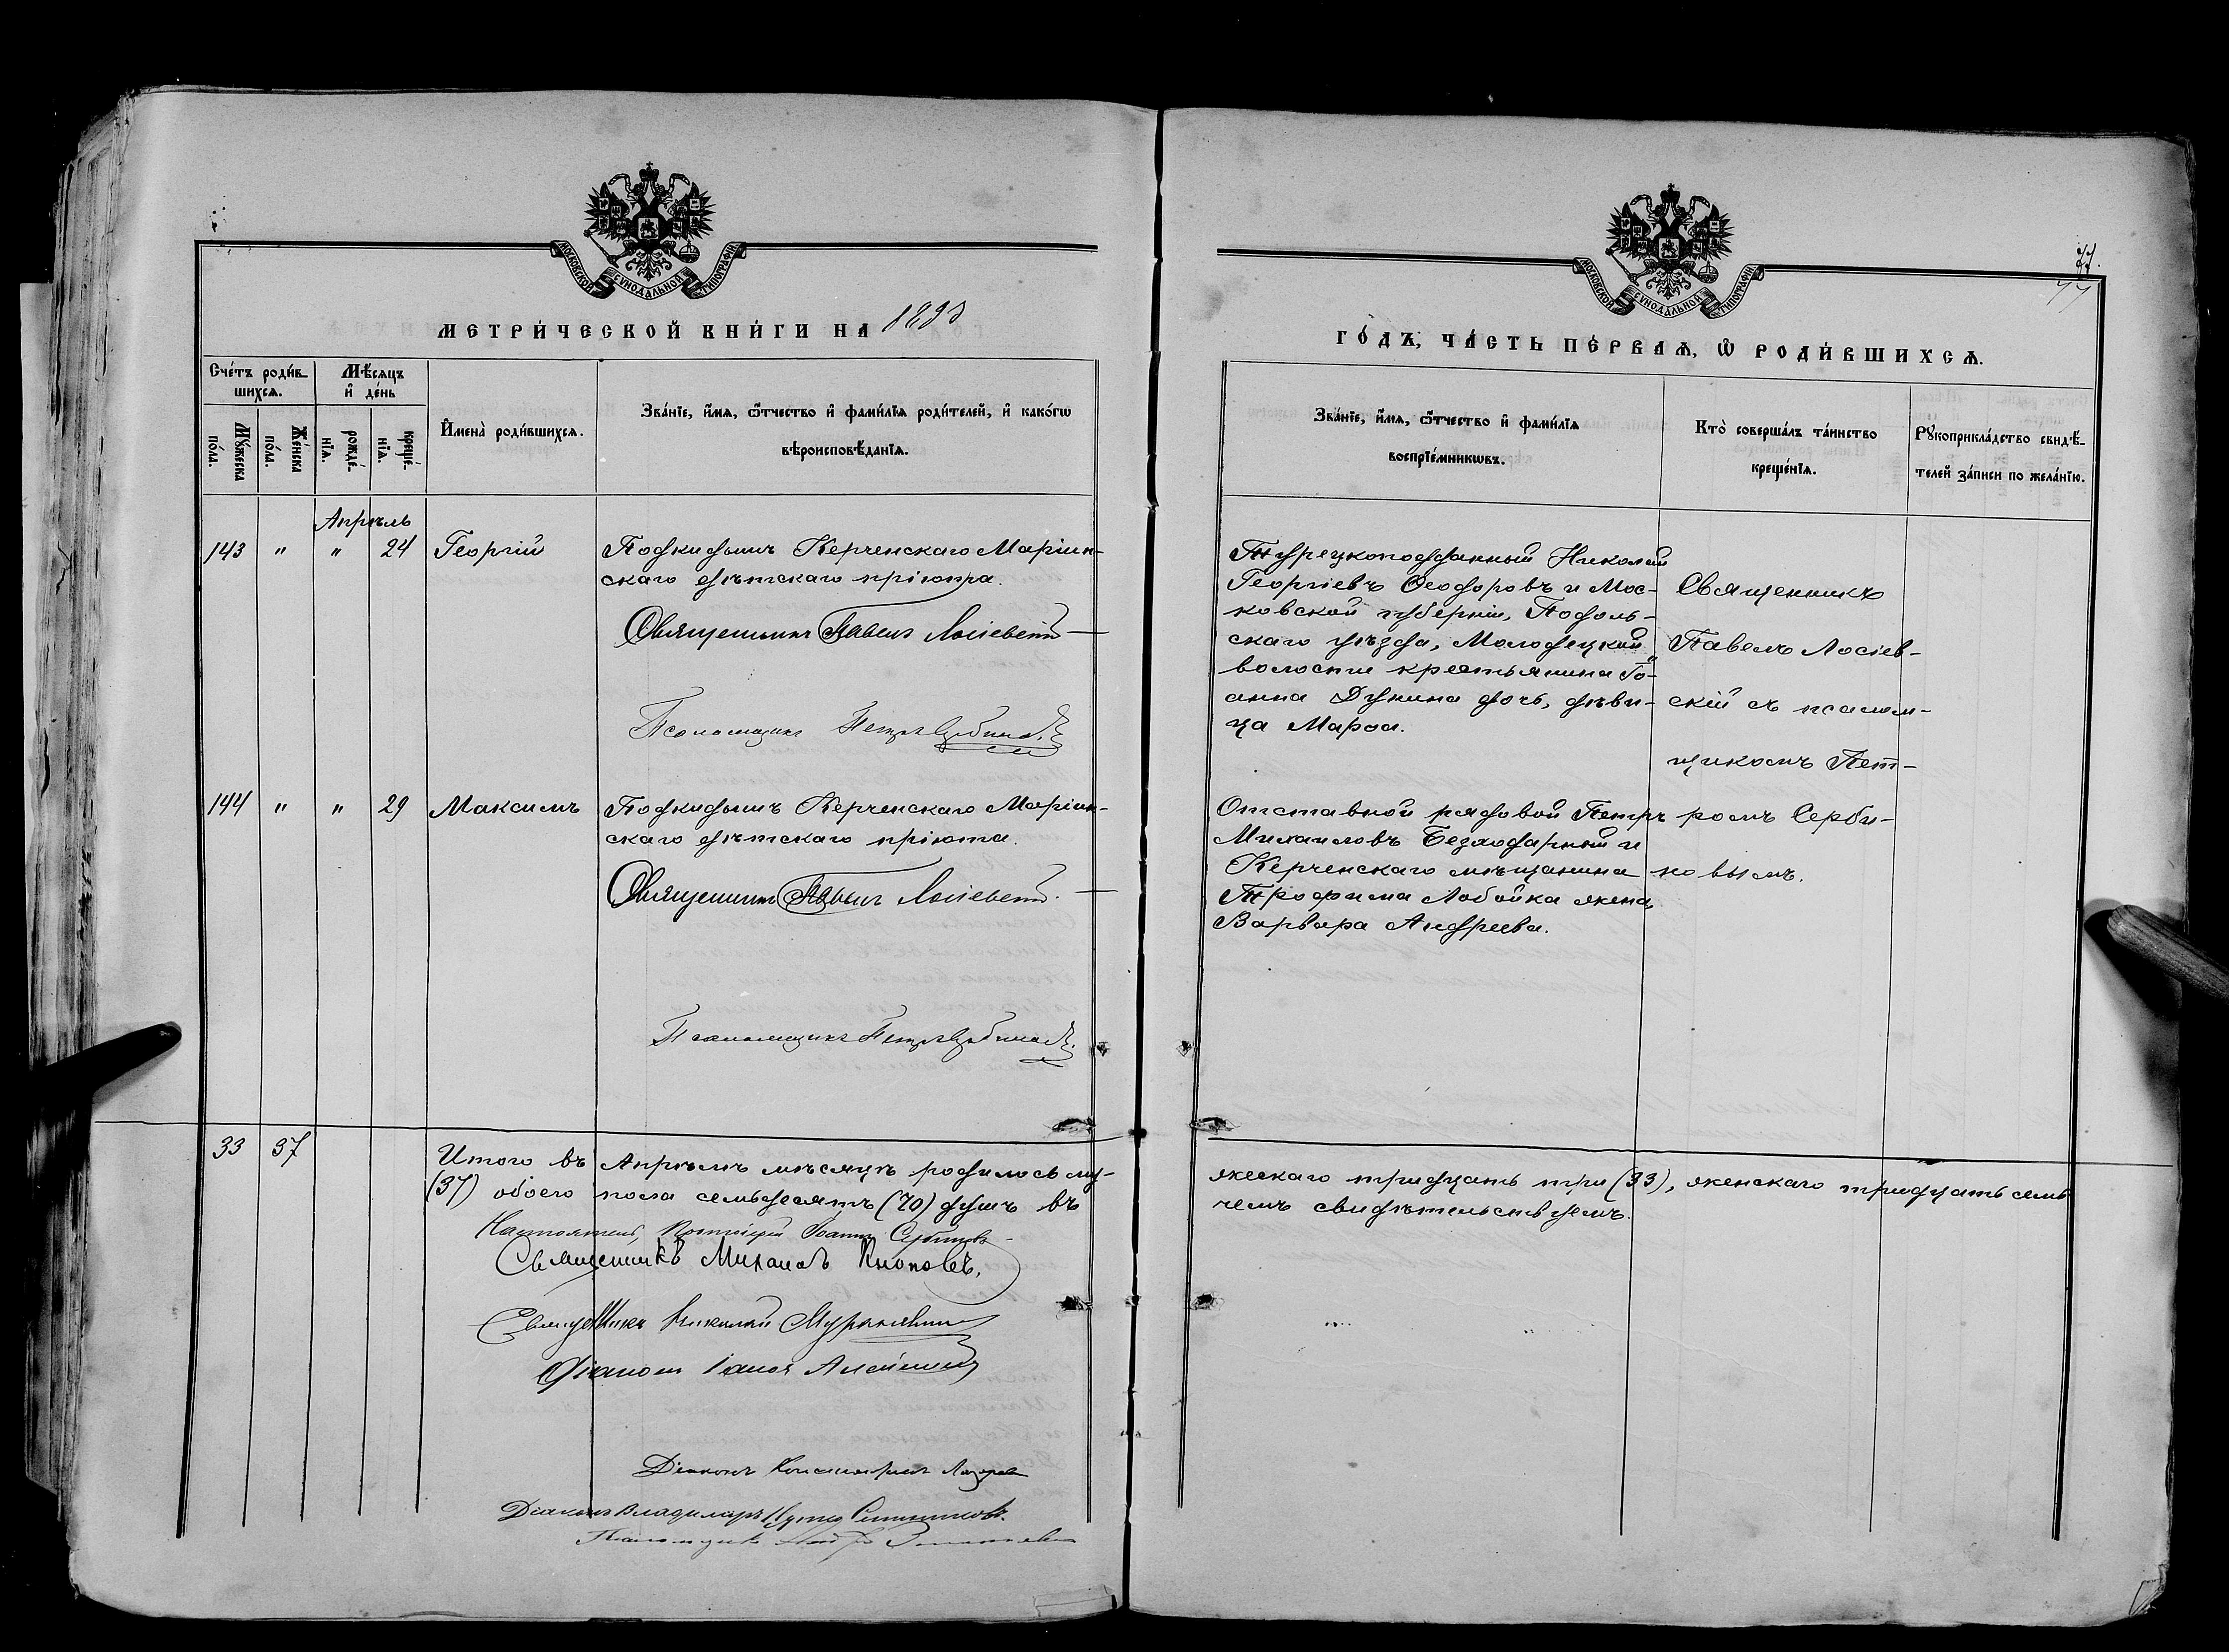 МОСКОВСКОЙ СѴНОДАЛЬНОЙ ТИПОГРАФІИ
МЕТРИ́ЧЕСКОЙ КНИ́ГИ НА
Сче́тъ роди́в-
шихсѧ.
Мѣ́сѧцъ
и҆ де́нь
Мꙋ́жеска
по́ла.
Же́нска
по́ла.
рожде́-
нїѧ.
креще́-
нїѧ.
И҆мена̀ роди́вшихсѧ.
Зва́нїе, и҆́мѧ, ѻ҆́тчество и҆ фами́лїѧ роди́телей, и҆ како́гѡ
вѣроисповѣ́данїѧ.
Апрѣль
143 " " 24 Георгій
Подкидышъ Керченскаго Маріин-
скаго дѣтскаго пріюта.
Священникъ Павелъ Лосіевскій
Псаломщикъ Петръ Сербиновъ
144 " " 29 Максимъ
Подкидышъ Керченскаго Маріин-
скаго дѣтскаго пріюта.
Священникъ Павелъ Лосіевскій.
Псаломщикъ Петръ Сербиновъ.
33 37
Итого въ Апрѣлѣ мѣсяцѣ родилось му-
(37) обоего пола семьдесятъ (70) душъ въ
Настоятель, Протоіерей Іоаннъ Сербиновъ
Священникъ Михаилъ Кноповъ.
Священникъ Николай
Діаконъ
Діаконъ Константинъ Лазарев
Діаконъ Владиміръ
Псаломщикъ
МОСКОВСКОЙ СѴНОДАЛЬНОЙ ТИПОГРАФІИ
77.
77
ГО́ДЪ, ЧА́СТЬ ПЕ́РВАѦ, Ѡ҆ РОДИ́ВШИХСѦ.
Зва́нїе, и҆́мѧ, ѻ҆́тчество и҆ фами́лїѧ
воспрїе́мникѡвъ.
Кто̀ соверша́лъ та́инство
креще́нїѧ.
Рꙋкоприкла́дство свидѣ́-
телей за́писи по жела́нїю.
Турецкоподданный Николай
Георгіевъ Ѳеодоровъ и Мос-
ковской губерніи, Подоль-
скаго уѣзда, Молодецкой
волости крестьянина Іо-
анна Дунина дочь, дѣви-
ца Марѳа.
Священникъ
Павелъ Лосіев-
скій съ псалом-
щикомъ Пет-
ромъ Серби-
новымъ.
Отставной рядовой Петръ
Михаиловъ Безходарный и
Керченскаго мѣщанина
Трофима Лобойка жена
Варвара Андреева.
жескаго тридцать три (33), женскаго тридцать семь
чемъ свидѣтельствуемъ.